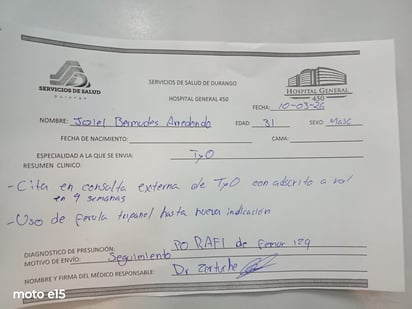 SERVICIOS DE SALUD
Durango
SERVICIOS DE SALUD DE DURANGO
HOSPITAL GENERAL 450
HOSPITAL GENERAL
450
FECHA: 10-03-26
NOMBRE: Joziel Bermudes Arredondo EDAD: 31 SEXO: Masc
FECHA DE NACIMIENTO: CAMA:
ESPECIALIDAD A LA QUE SE ENVIA: TyO
RESUMEN CLINICO:
- Cita en consulta externa de TyO con adscrito a
en 9 semanas
- Uso de ferula tripanel hasta nueva indicación
DIAGNOSTICO DE PRESUNCIÓN: PO RAFI de femur izq
MOTIVO DE ENVÍO: Seguimiento
NOMBRE Y FIRMA DEL MÉDICO RESPONSABLE: Dr Zertuche
moto e15